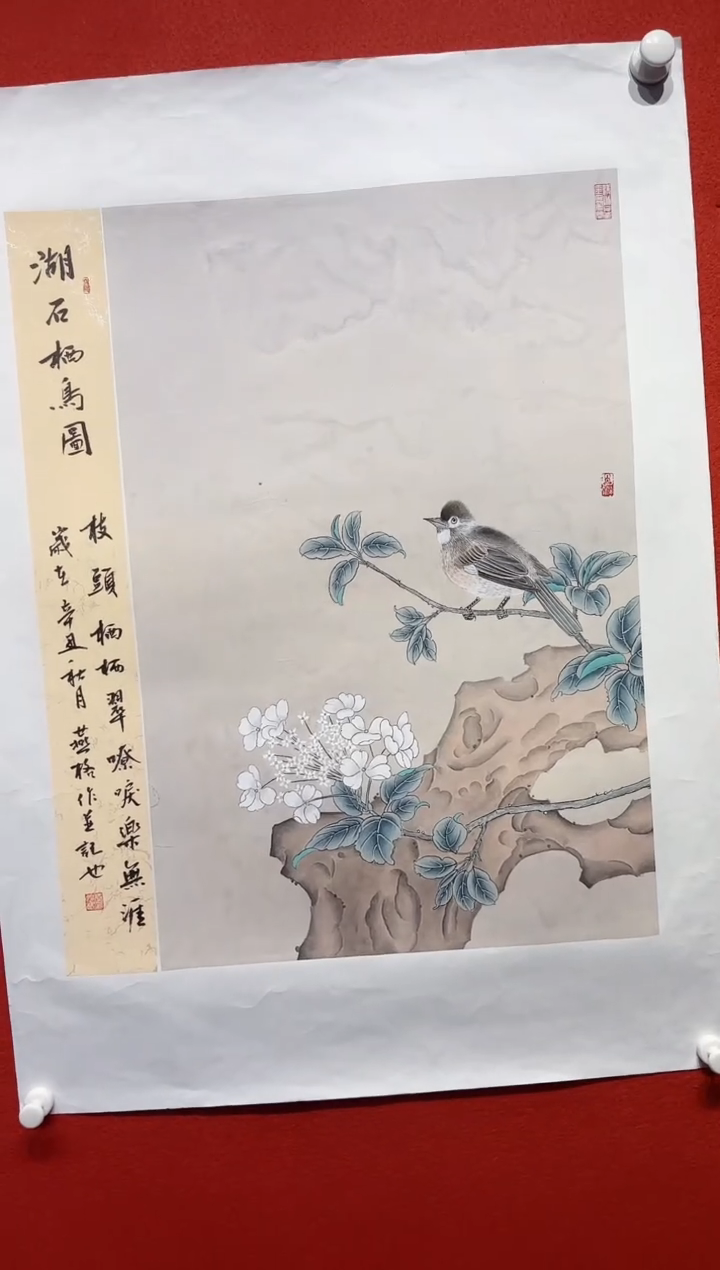 湖石栖鳥圖
枝頭栖栖翠嘹唳樂無涯
歲在辛丑秋月燕格作並記也